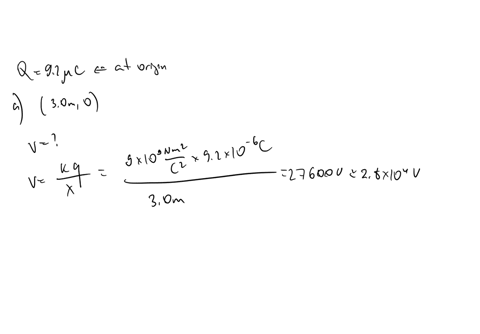 Q = 9.2 μC ⇐ at origin
a) (3.0m, 0)
V = ?
V = kq/x = 9 × 10⁹ Nm²/C² × 9.2 × 10⁻⁶ C / 3.0m = 27600 V ≈ 2.8 × 10⁴ V